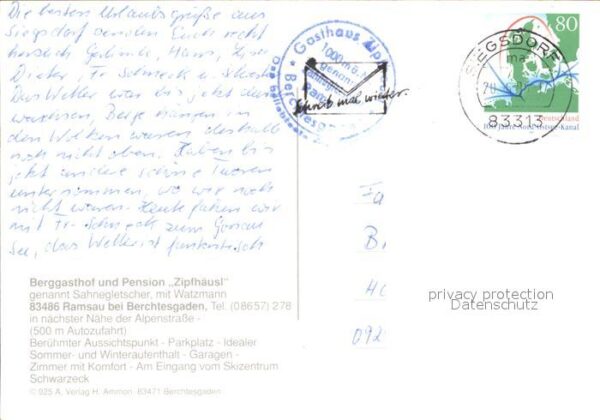 Die besten Urlaubsgrüße aus
Siegsdorf senden Euch recht
herzlich Gerlinde, Hans,
Dieter, Fr. Schneck u.
Das Wetter war bis jetzt
Berge hängen in
den Wolken waren deshalb
noch nicht oben. Haben bis
jetzt andere schöne Touren
unternommen, wo wir noch
nicht waren. Heute fahren wir
mit Fr. Schneck zum
See, das Wetter ist
Gasthaus
1000 m ü. M
genannt
Schreib mal wieder.
80
SIEGSDORF
83313
Deutschland
100 Jahre Nord-Ostsee-Kanal
Fa
B.
HC
092
privacy protection
Datenschutz
Berggasthof und Pension „Zipfhäusl"
genannt Sahnegletscher, mit Watzmann
83486 Ramsau bei Berchtesgaden, Tel. (08657) 278
in nächster Nähe der Alpenstraße -
(500 m Autozufahrt)
Berühmter Aussichtspunkt - Parkplatz - Idealer
Sommer- und Winteraufenthalt - Garagen -
Zimmer mit Komfort - Am Eingang vom Skizentrum
Schwarzeck
© 925 A, Verlag H. Ammon, 83471 Berchtesgaden